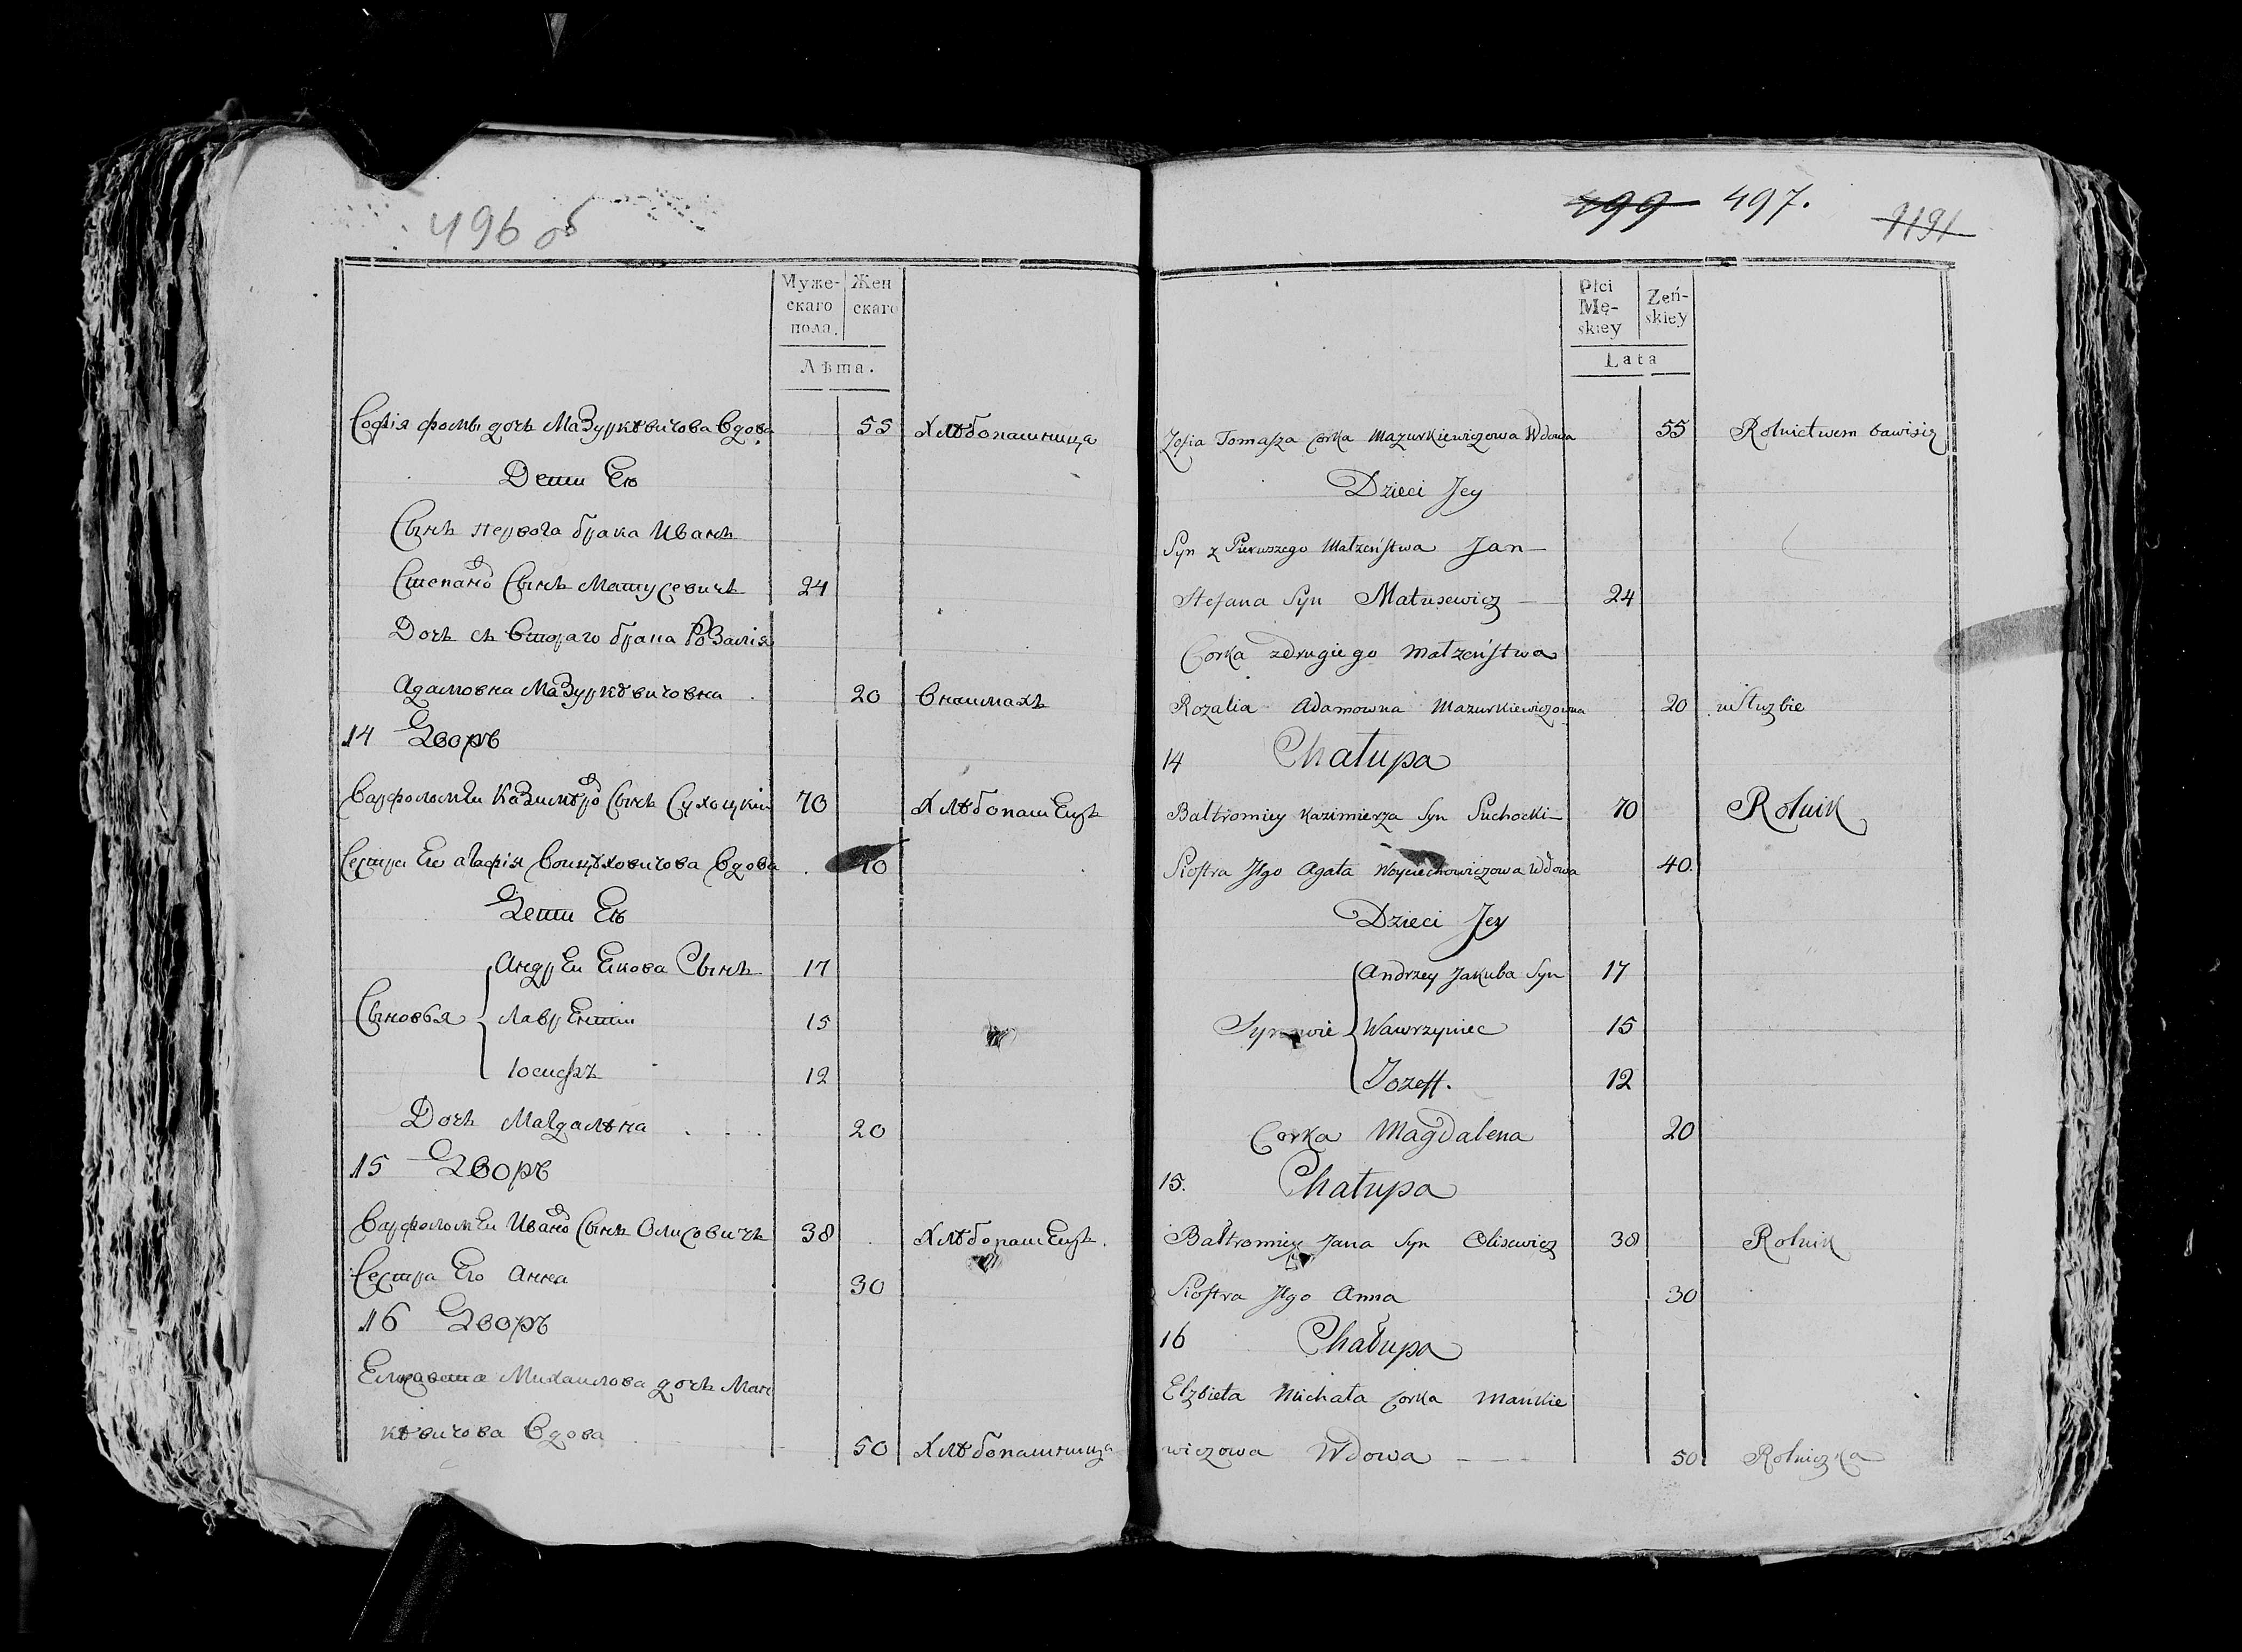 496 об
Муже-
скаго
пола.
Жен
скаго
Лѣта.
Софія фомы дочь Мазуркѣвичова вдова 55 хлѣбопашница
Дети Ею
Сынъ первога брака Иванъ
Степано Сынъ Матусевичъ 24
Дочь съ втораго брака Розалія
Адамовна Мазуркѣвичовна . 20 внаимахъ
14 Дворъ
Варфоломѣи Казимѣро Сынъ Сухоцкіи 70 хлѣбопашецъ
Сестра Его агафія Воицѣховичова вдова . 40
Дети Еѣ
Сыновья
Андрѣи Екова Сынъ 17
Лаврентіи 15
Іосифъ 12
Дочь Магдалѣна . . . 20
15 Дворъ
Варфоломѣи Ивано Сынъ Олисовичъ 38 . хлѣбопашецъ .
Сестра Его Анна 30
16 Дворъ
Елизавета Михаилова дочьМан
кѣвичова вдова 50 хлѣбопашница
499 497.
1191
Płci
Mę-
skiey
Zeń-
skiey
Lata
Zofia Tomasza Corka Mazurkiewiczowa Wdowa 55 Rolnictwem bawisię
Dzieci Jey
Syn z Pierwszego Małzeństwa Jan —
Stefana Syn Matusewicz — 24
Corka zdrugiego Małzeństwa
Rozalia Adamowna Mazurkiewiczowna 20 w Służbie
14 Chałupa
Bałtromiey Kazimierza Syn Suchocki — 70 Rolnik
Siostra Jego Agata Woyciechowiczowa Wdowa 40.
Dzieci Jey
Synowie
Andrzey Jakuba Syn 17
Wawrzyniec 15
Jozeff. 12
Corka Magdalena 20
15. Chałupa
Bałtromiey Jana Syn Olisewicz 38 Rolnik
Siostra Jego Anna 30
16 Chałupa
Elzbieta Michała Corka Mańkie
wiczowa Wdowa - - - 50 Rolniczka